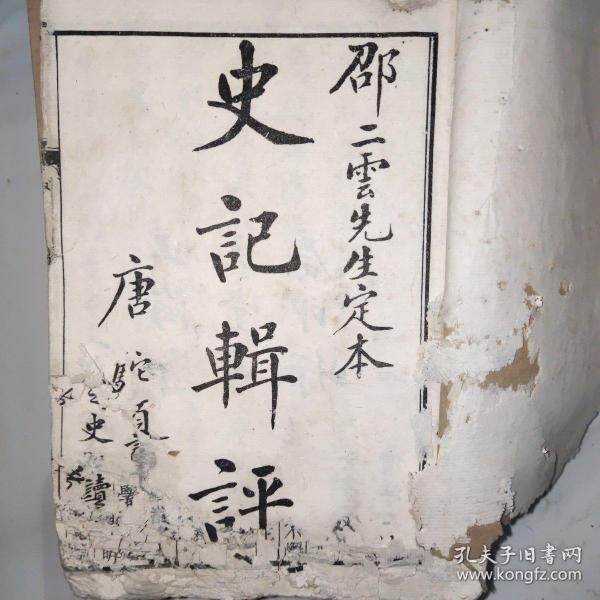 邵二雲先生定本
史記輯評
唐駝
史
讀
署
不
明
孔夫子旧书网
www.kongfz.com